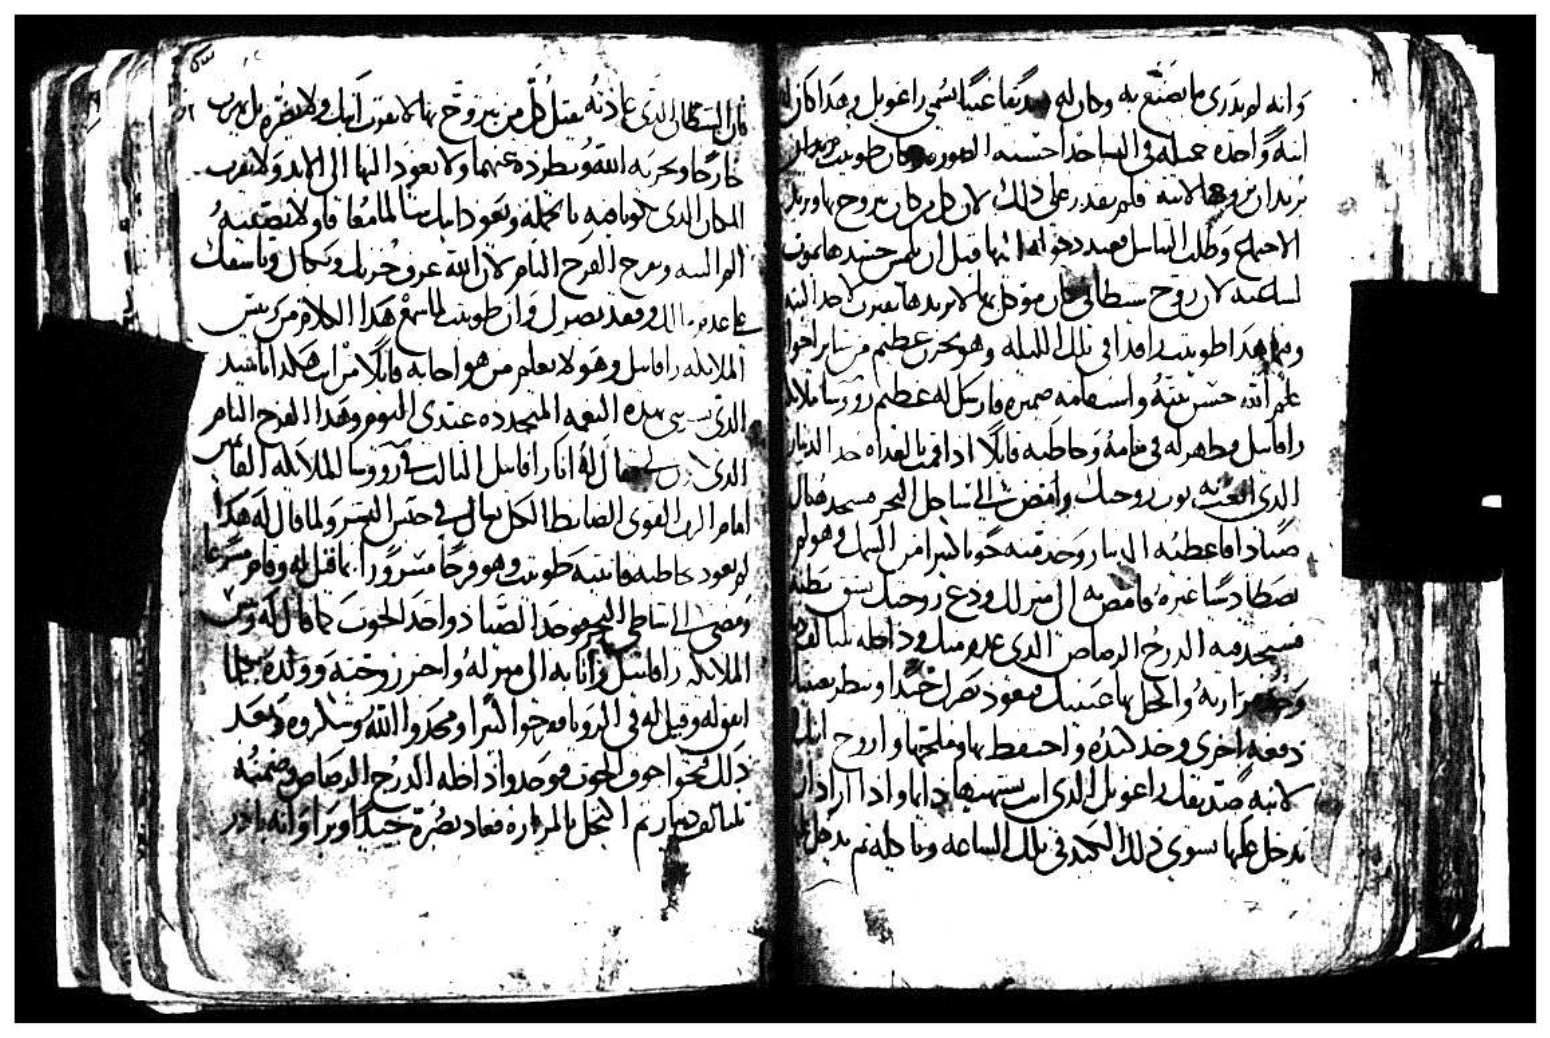 وانه لم يدرى ما يصنع به وكان له صديقا غنيا يسمى راغويل وهدا كان له
ابنه واحده جميله فى النسا جدا حسنه الصوره وكان طوبيت
يريد ان يزوجها لابنه فلم يقدر على ذلك لان كل من كان يتزوج بها ويريد
الاجتماع وطلب التناسل فعند دخوله اليها قبل ان يلمس جسدها يموت
لساعته لان روح شيطانى كان موكل بها لا يريدها تقترن لاحد البته
وبينما هدا طوبيت راقدا فى تلك الليله وهو بحزن عظيم من ساير احواله
علم الله حسن نيته واستقامة ضميره فارسل له عظيم روسا ملايكته
رافاييل فظهر له فى منامه وخاطبه قايلا ادا قمت بالغداه خد الدينار
الدى وامض الى ساحل البحر فستجد هناك
صيادا فاعطيه الدينار وخد منه حوتا كبيرا من السمك وهو لم
يصطاد شيا غيره فامض به الى منزلك ودع زوجتك تشق بطنه
فستجد فيه الدرج الرصاص الدى عدم منك وداخله
وخد مرارته واكحل بها عينيك فتعود تبصر جيدا وتنظر بعينيك
دفعه اخرى وخد كبده واحتفظ بها وملحها وازوج ابنك
لابنة صديقك راغويل الدى انت تشتهيها دايما وادا اراد ان
يدخل عليها يشوى دلك الكبد فى تلك الساعه وياكله ثم يدخل
فان الشيطان الدى عادته يقتل كل من يتزوج بها لا يقرب ابنك ولا يضره بل يهرب
خارجا ويخزيه الله ويطرده عنهما ولا يعود اليها الى الابد ولا يقرب
المكان الدى يكونا فيه بالجمله وتعود ابنك سالما معافا ولا تصيبه
الم البته وتفرح الفرح التام لان الله عرف حزنك وبكاك وتاسفك
على عدم وفقد بصرك وان طوبيت لما سمع هدا الكلام من ريس
الملايكه رافاييل وهو لا يعلم من هو اجابه قايلا من انت هكدا يا سيد
الدى بهده النعمه المتجدده عندى اليوم وهدا الفرح التام
الدى قال له انا رافاييل الثالث فى رووسا الملايكه القايمين
امام الرب القوى الضابط الكل تعال فى جنس البشر ولما قال له هكدا
لم يعود يخاطبه فانتبه طوبيت وهو فرحا مسرورا بما قيل له وقام مسرعا
ومضى الى شاطى البحر فوجد الصياد واخد الحوت كما قال له ريس
الملايكه رافاييل واتا به الى منزله واخبر زوجته وولده بجميع ما
اتفق له وقيل له فى الرويا ففرحوا كثيرا ومجدوا الله وشكروه وبعد
دلك فتحوا جوف الحوت فوجدوا داخله الدرج الرصاص وضمنه
ثلثمايه دينار ثم اكتحل بالمراره فعاد بصره جيدا وبرا وانه بادر